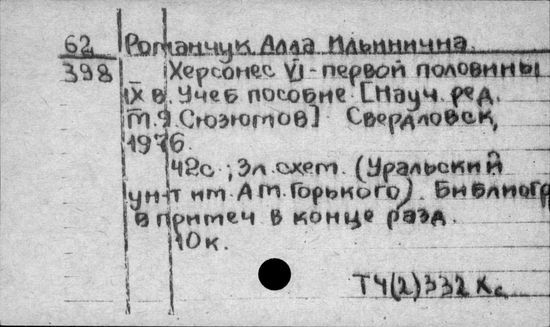 62
398
Романчук Алла Ильинична.
Херсонес VI-первой половины
IX в. Учеб пособие [Науч. ред.
М.Я.Сюзюмов] Свердловск,
1976.
42с.; 3л.схем. (Уральский
ун-т им. А М. Горького). Библиогр
в примеч в конце разд.
10к.
Т4(2)332 Хс